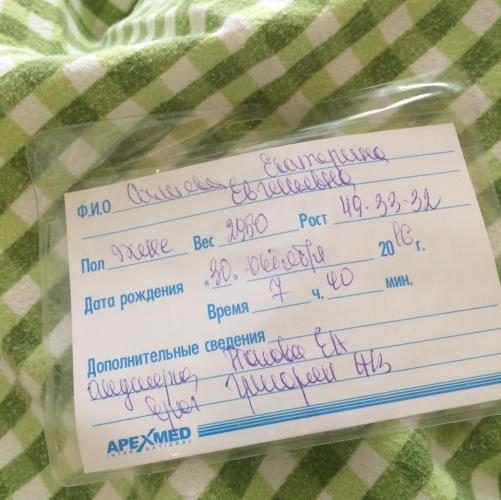 Ф.И.О Екатерина
Евгеньевна
Пол жен Вес 2950 Рост 49-33-32
Дата рождения "30" октября 2016 г.
Время 7 ч. 40 мин.
Дополнительные сведения
акушерка Попова ЕА
врач Григорян НВ
APEXMED
INTERNATIONAL